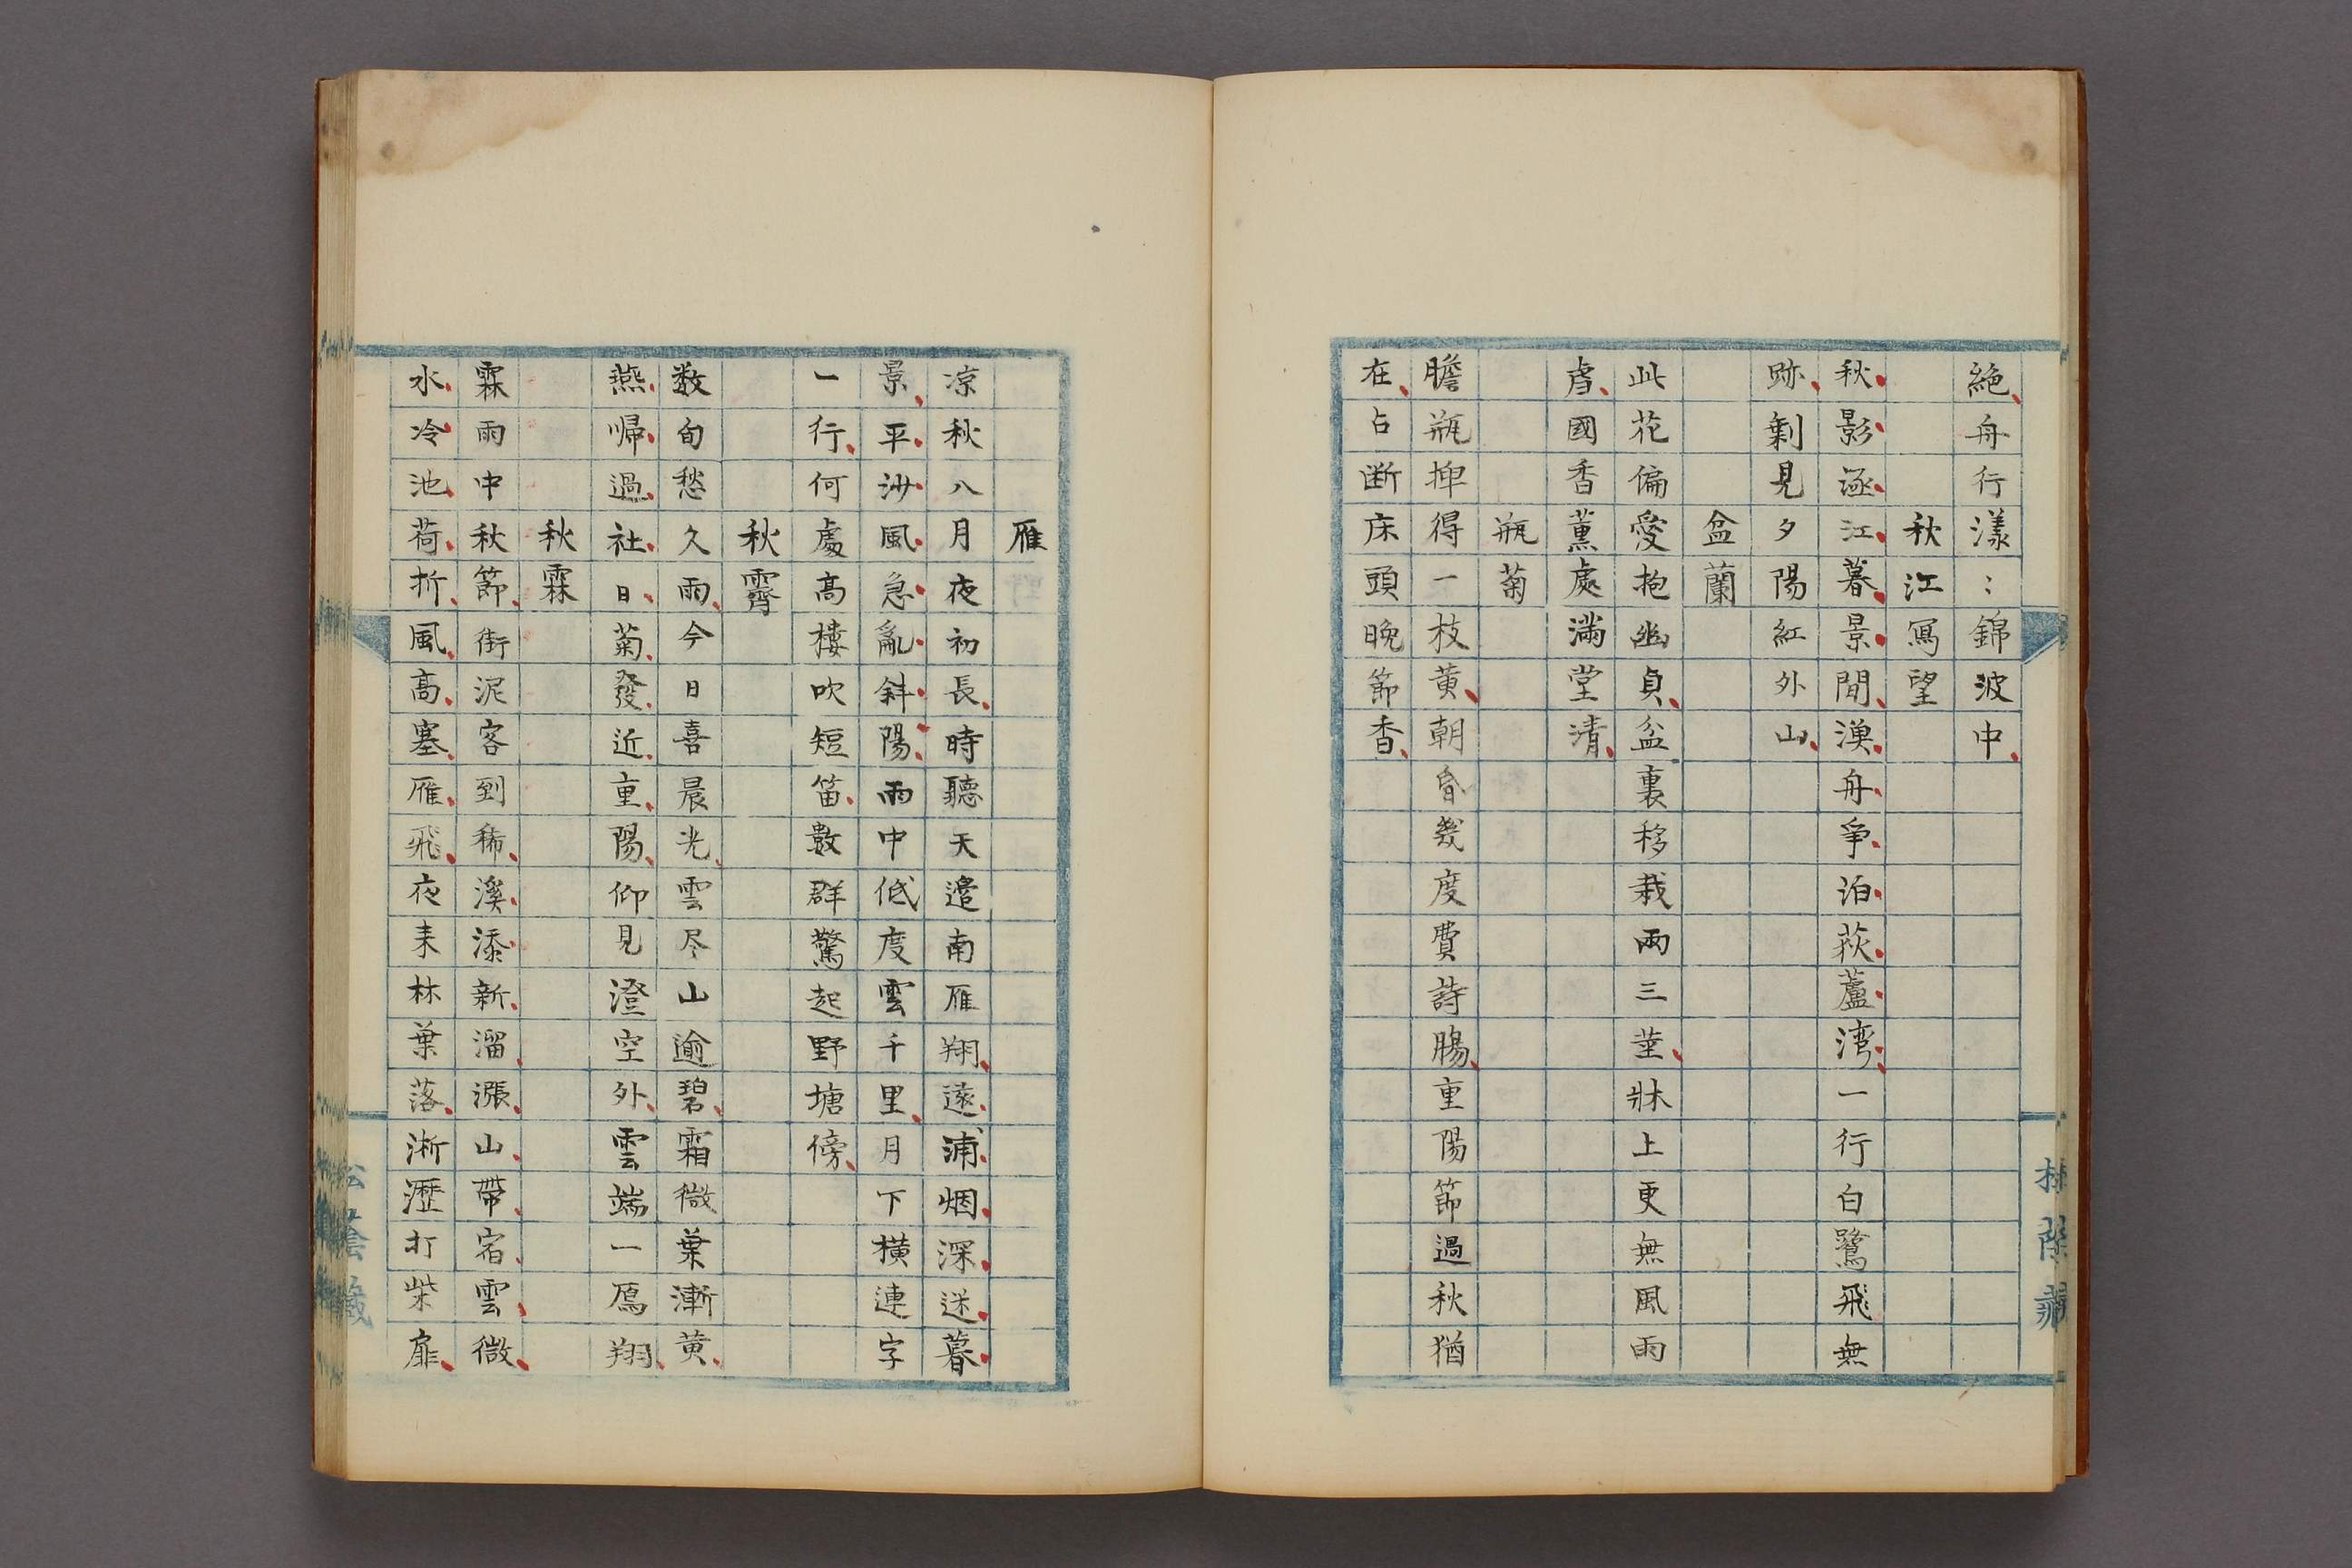 絶舟行漾〻錦波中
秋江冩望
秋影逐江暮景閒漁舟爭泊荻蘆湾一行白鷺飛無
跡剰見夕陽紅外山
盆蘭
此花偏愛抱幽貞盆裏移栽兩三莖牀上更無風雨
虐國香薫處滿堂清
瓶菊
膽瓶挿得一枝黄朝昏幾度費詩腸重陽節過秋猶
在占断床頭晩節香
雁
凉秋八月夜初長時聽天邉南雁翔遠浦烟深迷暮
景平沙風急亂斜陽雨中低度雲千里月下横連字
一行何處高樓吹短笛數群驚起野塘傍
秋霽
数旬愁久雨今日喜晨光雲尽山逾碧霜微葉漸黄
燕帰過社日菊發近重陽仰見澄空外雲端一鴈翔
秋霖
霖雨中秋節街泥客到稀溪添新溜漲山帶宿雲微
水冷池荷折風高塞雁飛夜来林葉落淅瀝打柴扉